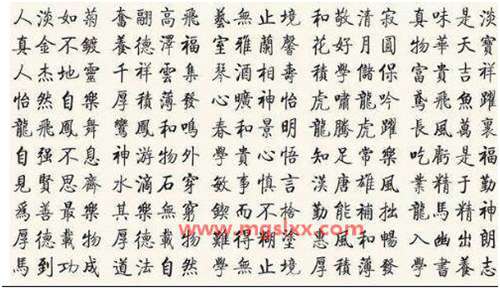 人淡如菊 奮翮高飛 藝無止境 和敬清寂 真味是淡
真金不鍍 養德澤福 室雅蘭馨 花好月圓 物華天寶
人杰地靈 千祥雲集 琴酒相壽 積學儲保 富貴吉祥
怡然自樂 厚積薄發 心曠神怡 虎嘯龍吟 鳶飛魚躍
龍飛鳳舞 鸞鳳和鳴 春和景明 龍騰虎躍 長風萬裏
自强不息 神游物外 學貴心悟 知足常樂 吃虧是福
見賢思齊 水滴石穿 敏事慎言 漢唐雄風 業精于勤
爲善最樂 其樂無窮 鍥而不捨 勤能補拙 龍馬精神
www.mgslxx.com
厚德載物 厚德載物 難得糊塗 惠風和暢 入幽出朗
馬到功成 道法自然 學無止境 厚積薄發 學書養志